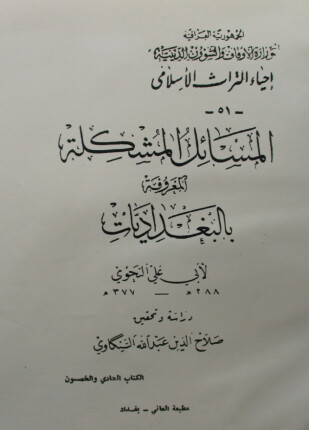 الجمهورية العراقية
وزارة الأوقاف والشؤون الدينية
إحياء التراث الأسلامي
- ٥١ -
المسائل المشكلة
المعروفة
بالبغداديات
لأبي علي النحوي
٢٨٨ هـ — ٣٧٧ هـ
دراسة وتحقيق
صلاح الدين عبدالله السنكاوي
الكتاب الحادي والخمسون
مطبعة العاني - بغداد